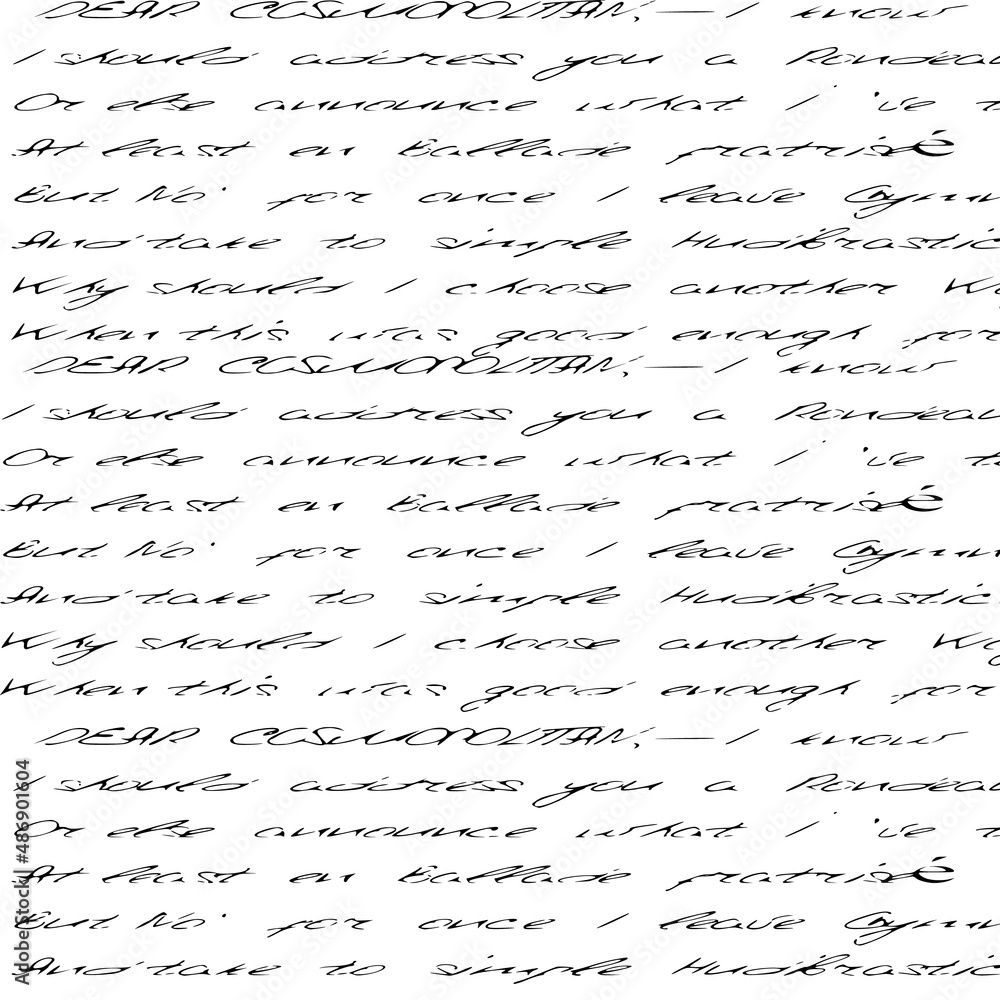 DEAR COSMOPOLITAN,—I know
I should address you a Rondeau
Or else announce what I 've t
At least en Ballade fratrisé
But No for once I leave Gymn
And take to simple Hudibrastic
Why should I choose another W
When this was good enough for
DEAR COSMOPOLITAN,—I know
I should address you a Rondeau
Or else announce what I 've t
At least en Ballade fratrisé
But No for once I leave Gymn
And take to simple Hudibrastic
Why should I choose another W
When this was good enough for
DEAR COSMOPOLITAN,—I know
I should address you a Rondeau
Or else announce what I 've t
At least en Ballade fratrisé
But No for once I leave Gymn
And take to simple Hudibrastic
Adobe Stock | #486901604